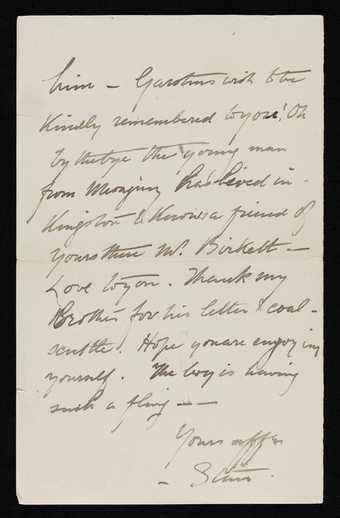 him - Gardners wish to be
kindly remembered to you! Oh
by the bye the young man
from has lived in
Kingston & knows a friend of
yours there Mr. Birkett -
Love to you. Thank my
Brother for his letter & coal-
scuttle. Hope you are enjoying
yourself. The boy is having
such a fling - -
Yours affec
-